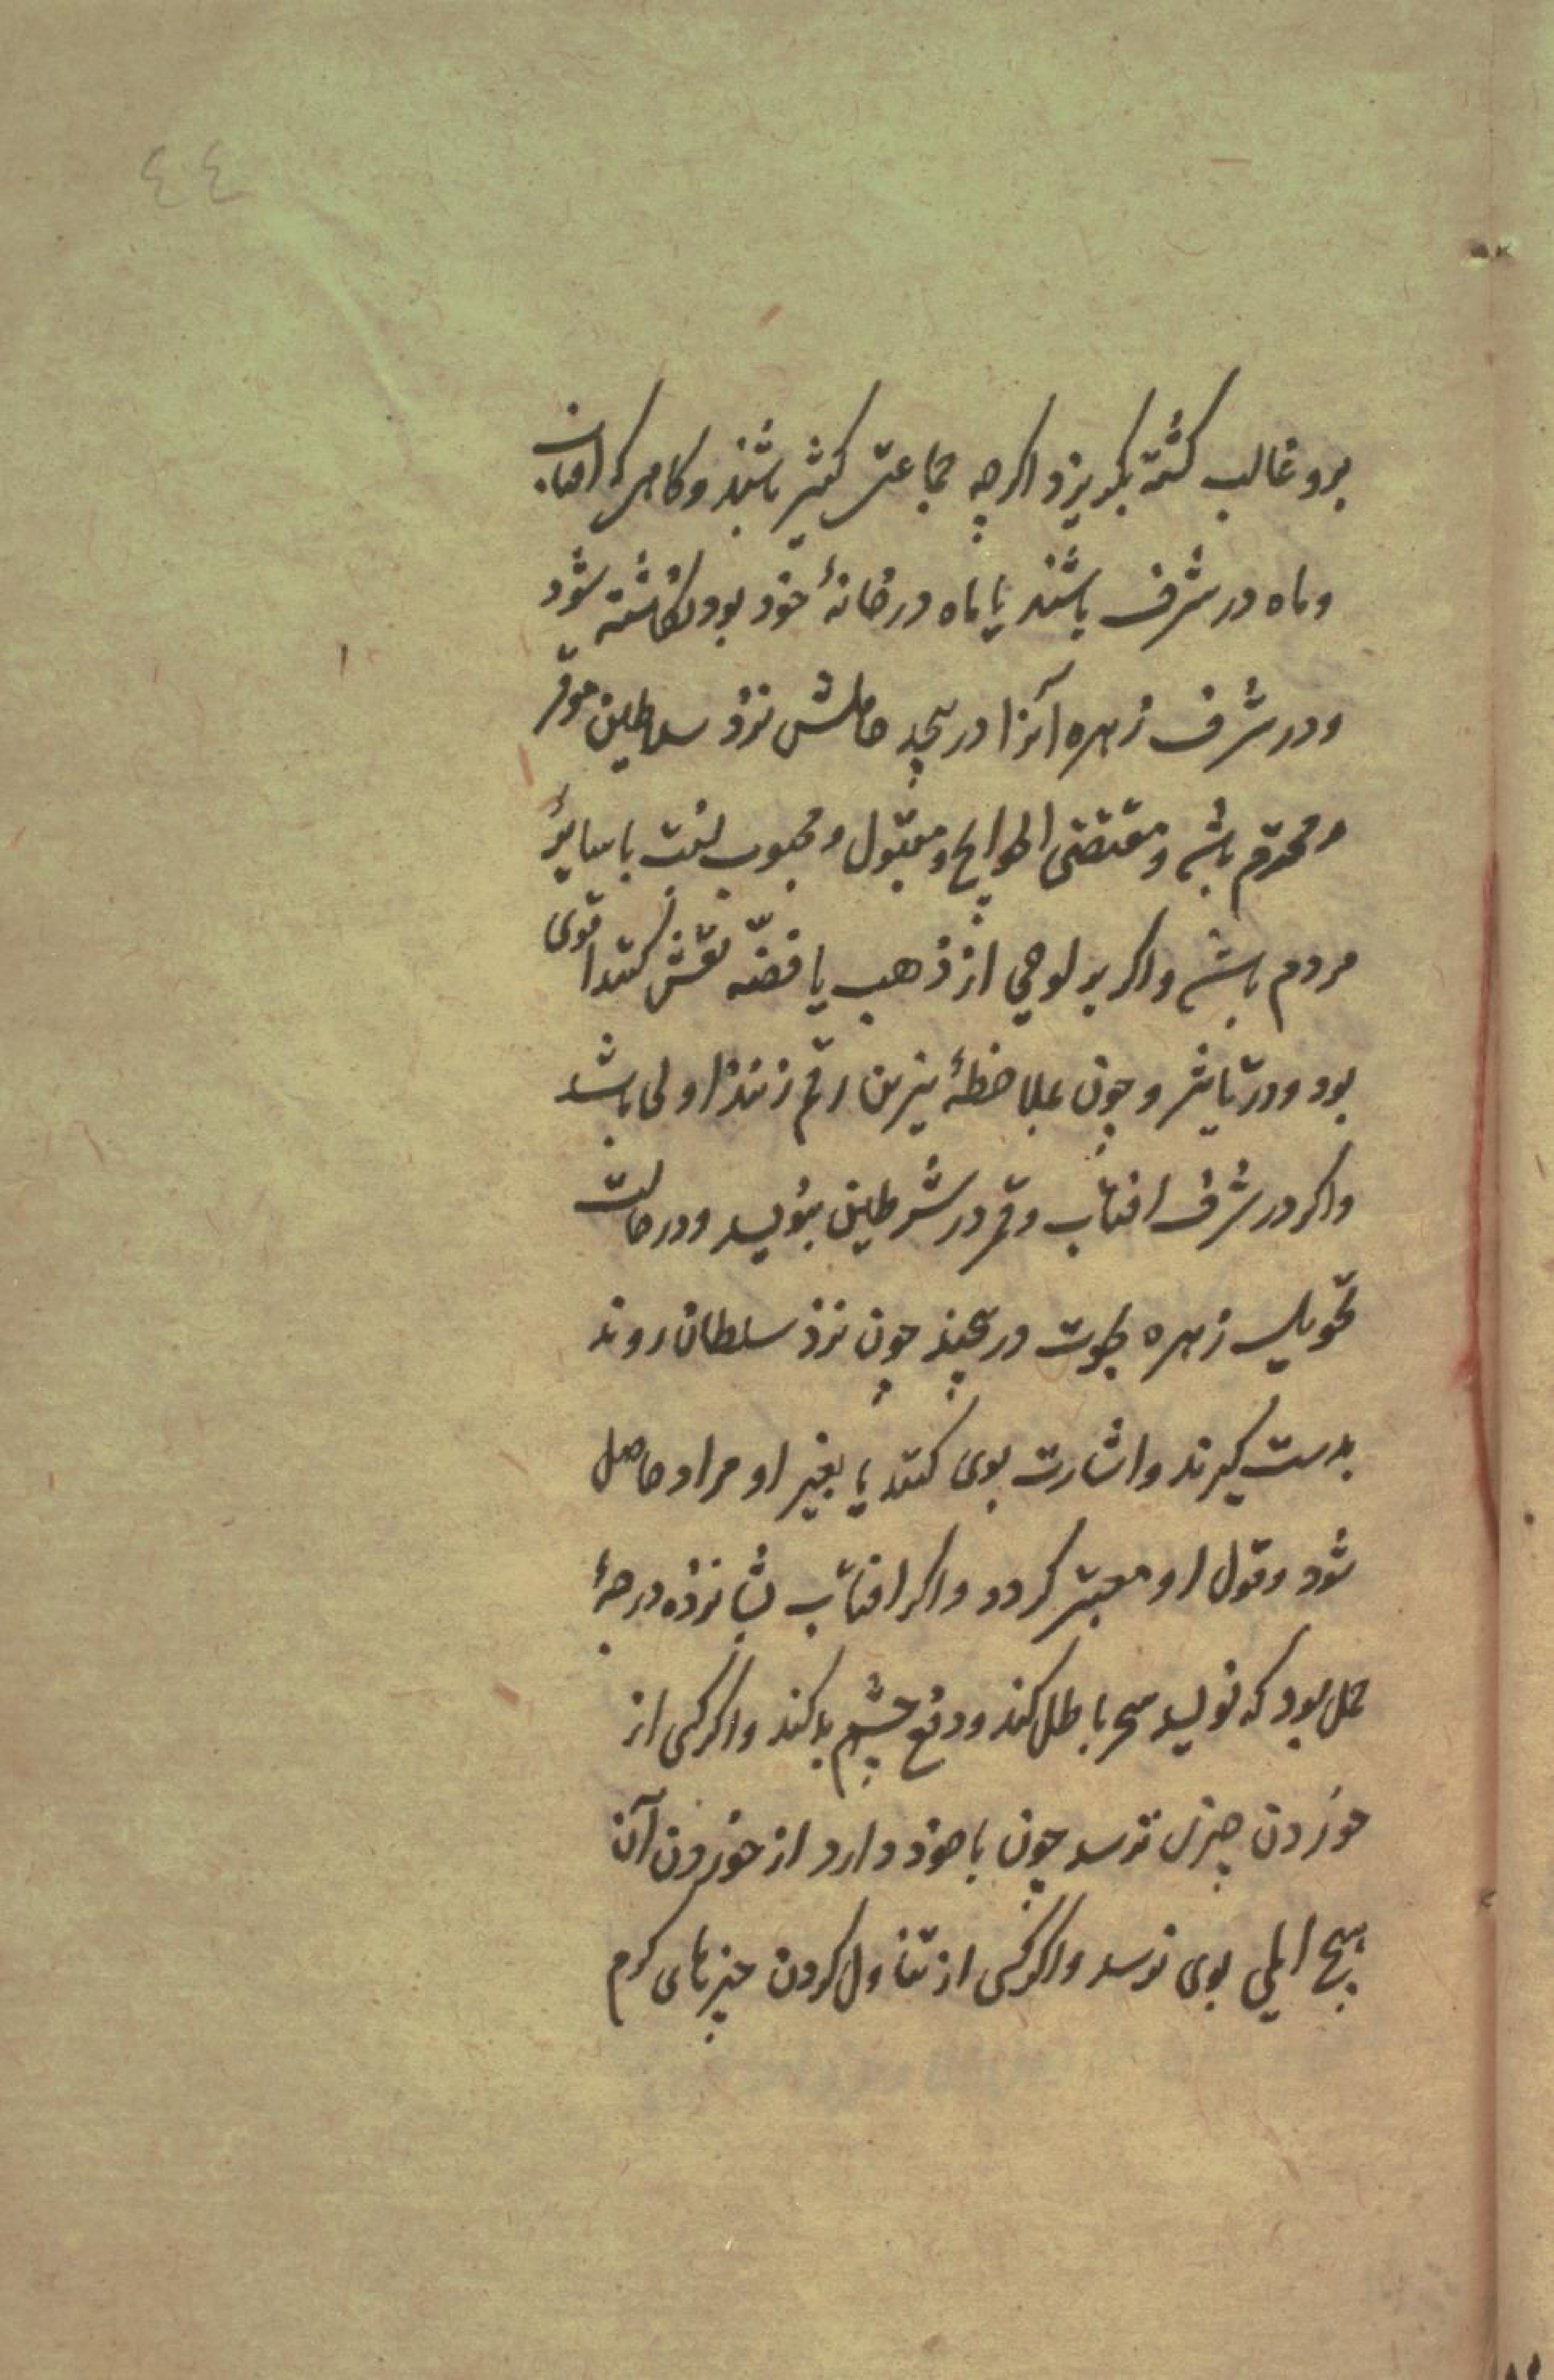 ٤٤
برو غالب كشته بكريزد اكرچه جماعتى كثير باشند وكاهى كه افتاب
وماه در شرف باشند يا ماه در خانهٔ خود بود نكاشته شود
ودر شرف زهره آنرا در پيچد حاملش نزد سلاطين موقر
ومحترم باشد ومقتضى الحوايج ومقبول ومحبوب نسبت با ساير
مردم باشد واكر بر لوحى از ذهب يا فضّه نقش كنند اقوى
بود ودر تاثير وچون بملاحظهٔ نيرين رقم زنند اولى باشد
واكر در شرف افتاب وقمر در شرطين بنويسد ودر حالت
تحويل زهره بحوت در پيچند چون نزد سلطان روند
بدست كيرند واشارت بوى كنند يا بغير او مراد حاصل
شود وقول او معتبر كردد واكر افتاب بشانزده درجهٔ
حمل بود كه نويسد سحر باطل كند ودفع چشم بد كند واكر كسى از
خوردن چيزى ترسد چون با خود دارد از خوردن آن
هيچ المى بوى نرسد واكر كسى از تناول كردن چيزهاى كرم